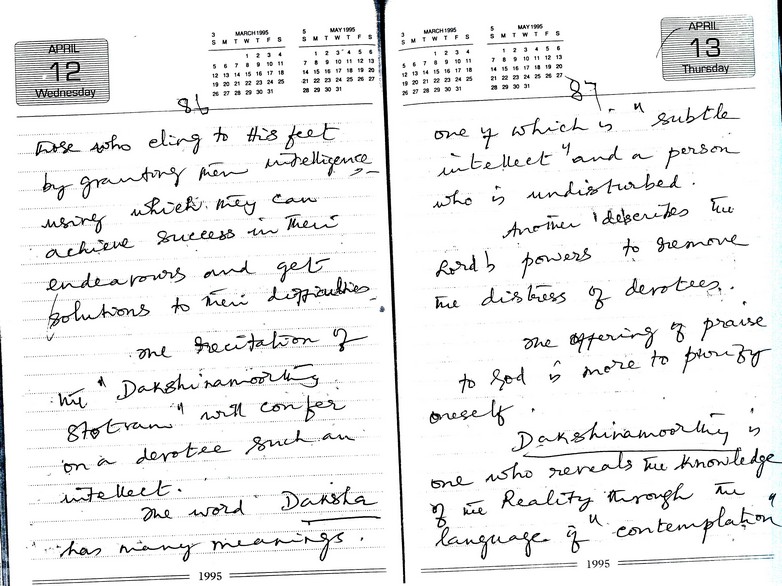 APRIL
12
Wednesday
3 MARCH 1995
S M T W T F S
1 2 3 4
5 6 7 8 9 10 11
12 13 14 15 16 17 18
19 20 21 22 23 24 25
26 27 28 29 30 31
5 MAY 1995
S M T W T F S
1 2 3 4 5 6
7 8 9 10 11 12 13
14 15 16 17 18 19 20
21 22 23 24 25 26 27
28 29 30 31
86
those who cling to His feet
by granting them intelligence
using which they can
achieve success in their
endeavours and get
solutions to their difficulties.
The recitation of
the "Dakshinamoorthy
Stotram" will confer
on a devotee such an
intellect.
The word Daksha
has many meanings.
1995
3 MARCH 1995
S M T W T F S
1 2 3 4
5 6 7 8 9 10 11
12 13 14 15 16 17 18
19 20 21 22 23 24 25
26 27 28 29 30 31
5 MAY 1995
S M T W T F S
1 2 3 4 5 6
7 8 9 10 11 12 13
14 15 16 17 18 19 20
21 22 23 24 25 26 27
28 29 30 31
APRIL
13
Thursday
87
one of which is "subtle
intellect" and a person
who is undisturbed.
Another describes the
Lord's powers to remove
the distress of devotees.
The offering of praise
to God is more to purify
oneself.
Dakshinamoorthy is
one who reveals the knowledge
of the Reality through the
language of "contemplation"
1995